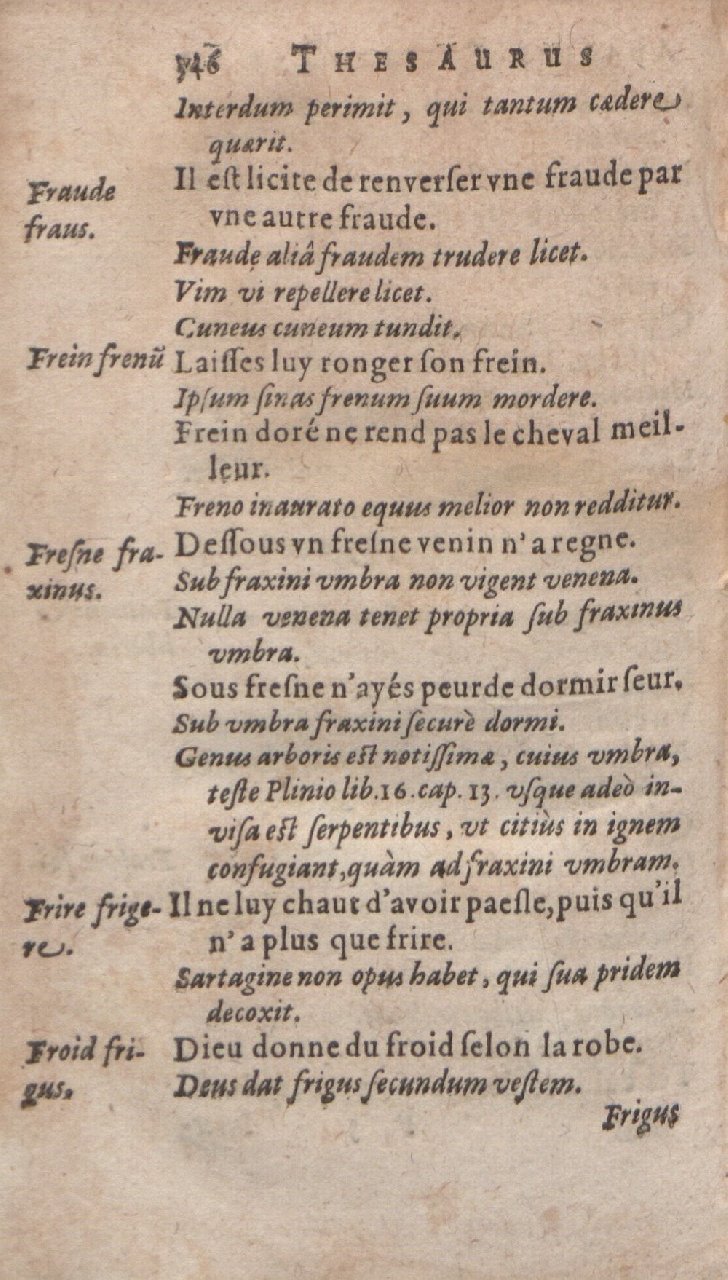 746 THESAURUS
Interdum perimit, qui tantum cædere
quærit.
Fraude
fraus.
Il est licite de renverſer vne fraude par
vne autre fraude.
Fraude aliâ fraudem trudere licet.
Vim vi repellere licet.
Cuneus cuneum tundit.
Frein frenū
Laiſſes luy ronger ſon frein.
Ipſum ſinas frenum ſuum mordere.
Frein doré ne rend pas le cheval meil-
leur.
Freno inaurato equus melior non redditur.
Freſne fra-
xinus.
Deſſous vn freſne venin n'a regne.
Sub fraxini vmbra non vigent venena.
Nulla venena tenet propria ſub fraxinus
vmbra.
Sous freſne n'ayés peur de dormir ſeur.
Sub vmbra fraxini ſecurè dormi.
Genus arboris est notiſſimæ, cuius vmbra,
teſte Plinio lib.16.cap.13. vſque adeò in-
viſa est ſerpentibus, vt citiùs in ignem
confugiant, quàm ad fraxini vmbram.
Frire frige-
re.
Il ne luy chaut d'avoir paeſle, puis qu'il
n'a plus que frire.
Sartagine non opus habet, qui ſua pridem
decoxit.
Froid fri-
gus.
Dieu donne du froid ſelon la robe.
Deus dat frigus ſecundum veſtem.
Frigus